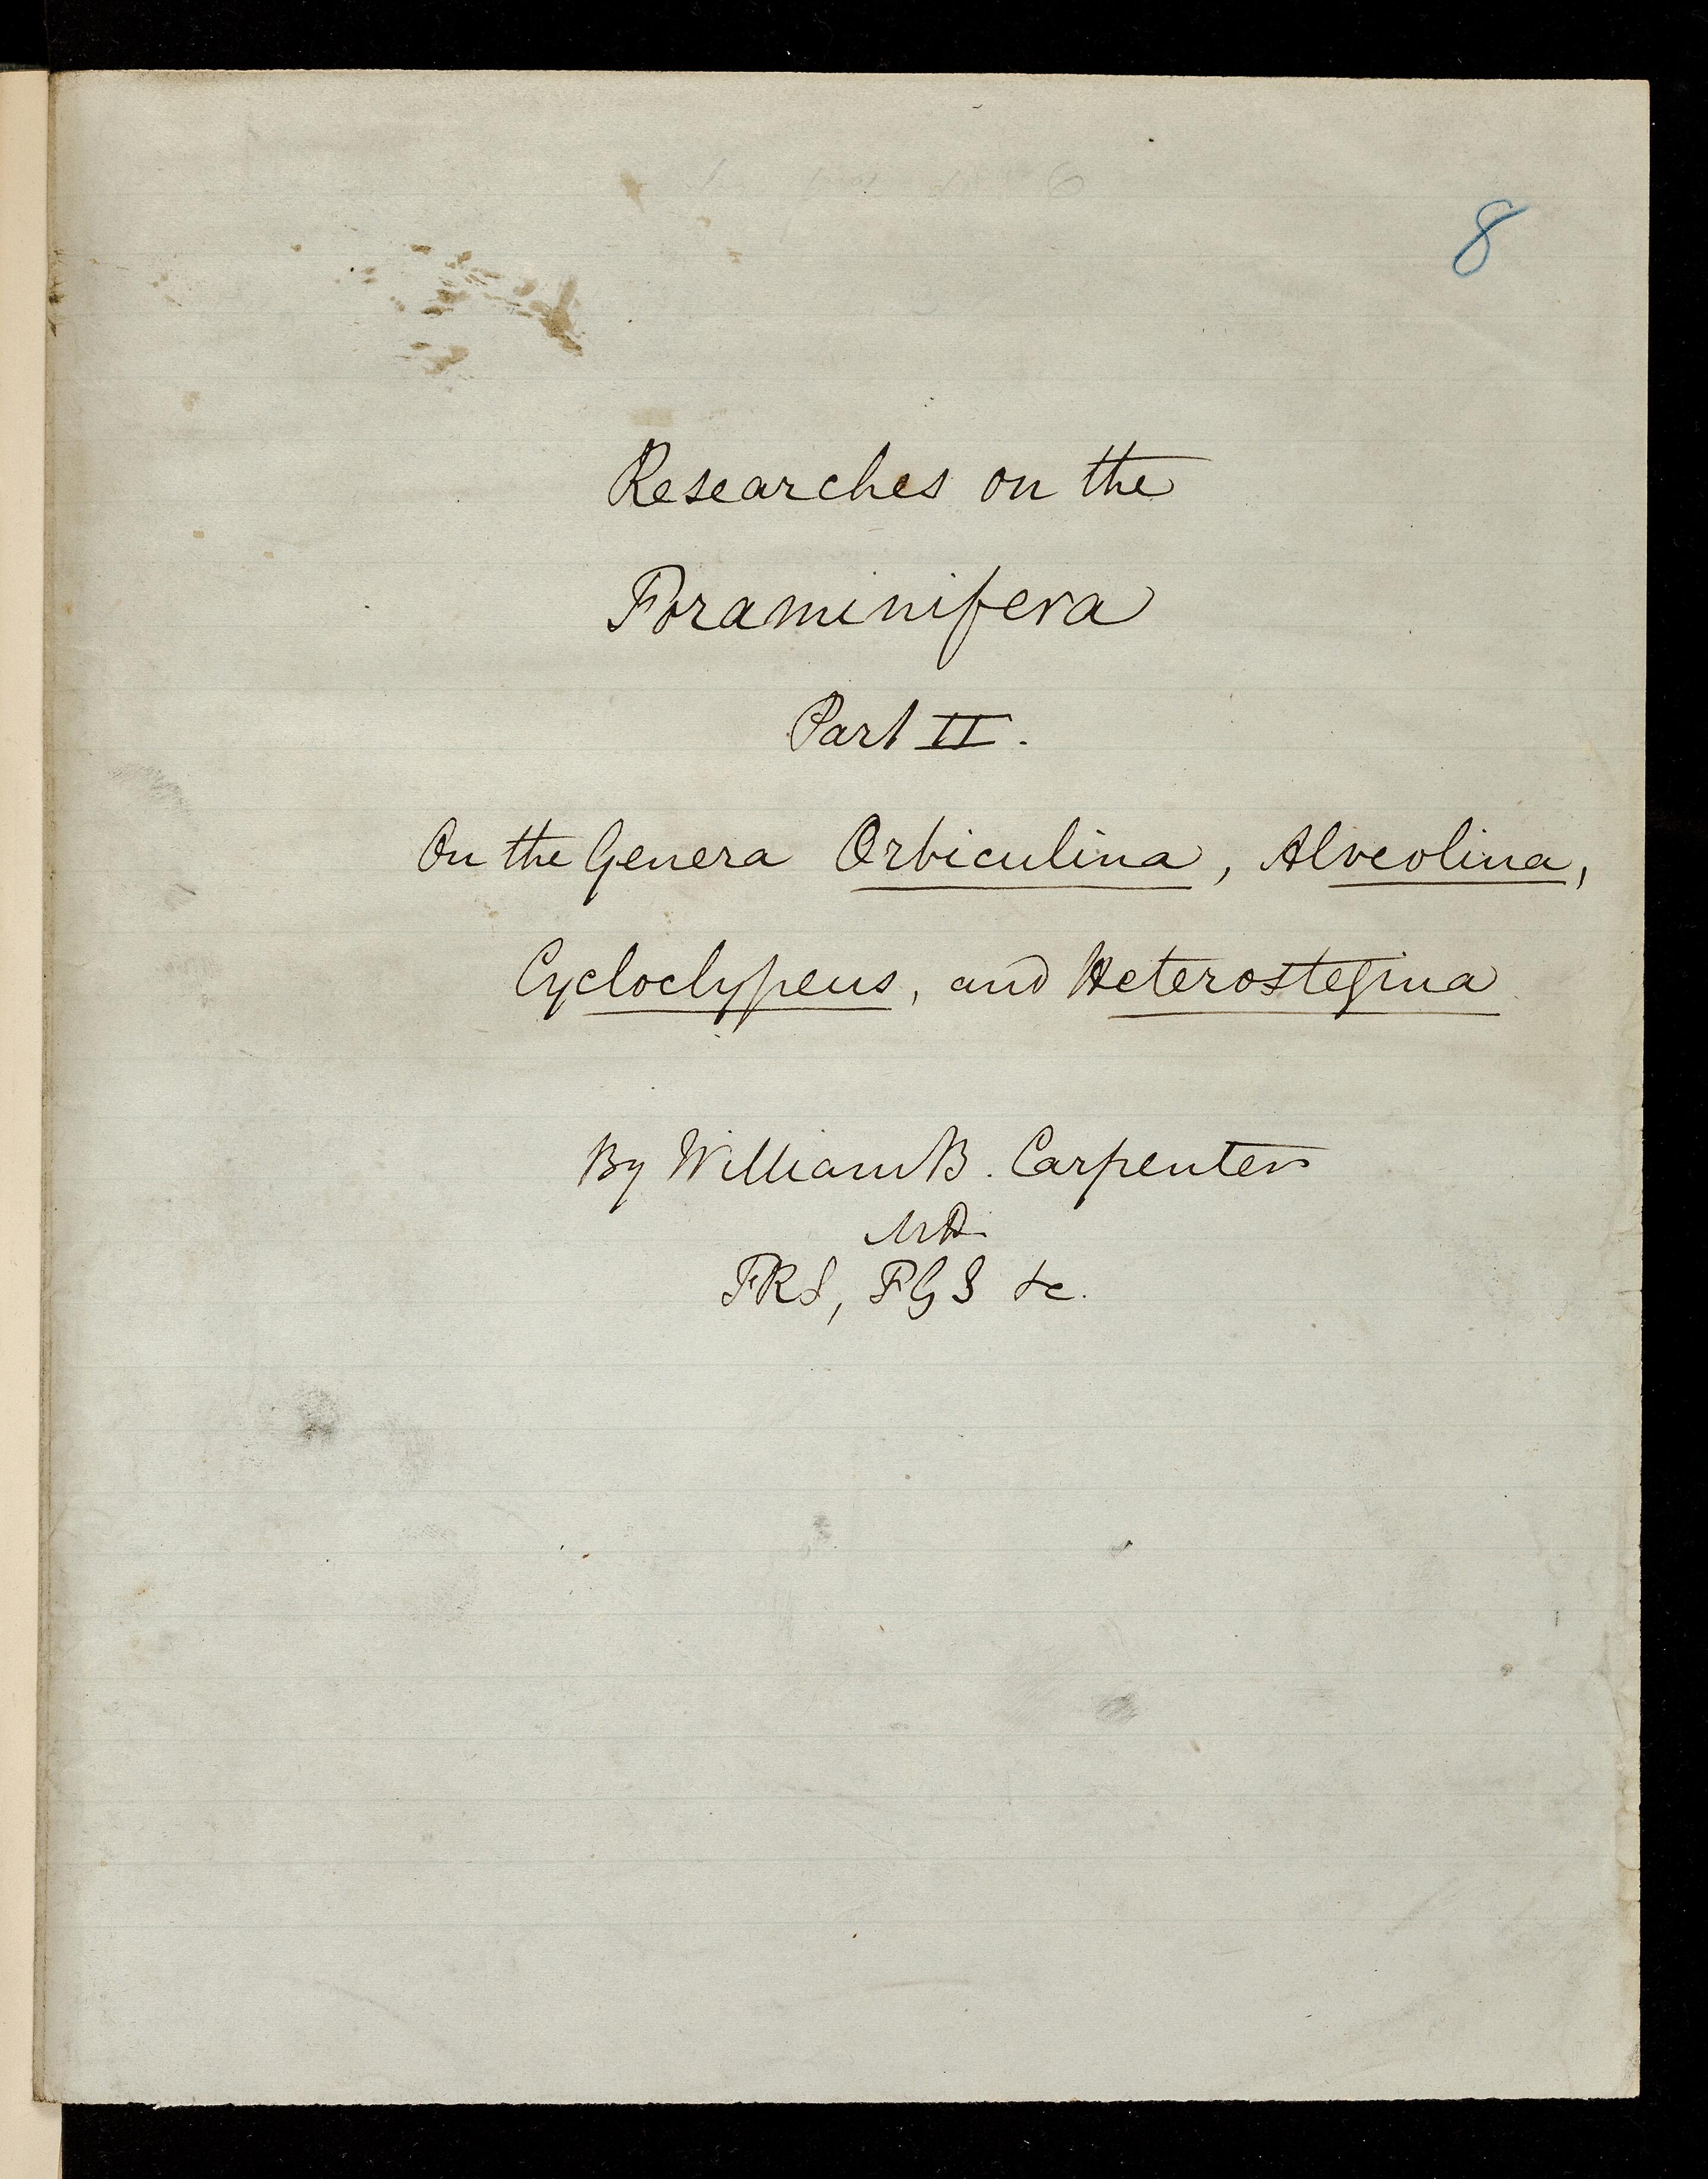 8
Researches on the
Foraminifera
Part II.
On the Genera Orbiculina, Alveolina,
Cycloclypeus, and Heterostegina
By William B. Carpenter
MD.
FRS, FGS &c.